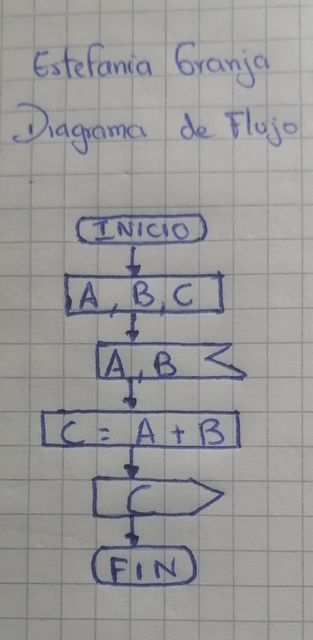 Estefania Granja
Diagrama de Flujo
INICIO
A, B, C
A, B
C = A + B
C
FIN